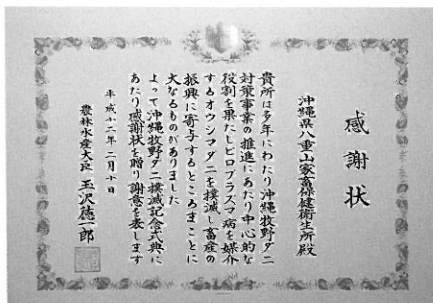 感謝状
沖縄県八重山家畜保健衛生所殿
貴所は多年にわたり沖縄牧野ダニ
対策事業の推進にあたり中心的な
役割を果たしピロプラズマ病を媒介
するオウシマダニを撲滅し畜産の
振興に寄与するところまことに
大なるものがありました
よって沖縄牧野ダニ撲滅記念式典に
あたり感謝状を贈り謝意を表します
平成十二年二月十日
農林水産大臣 玉沢徳一郎